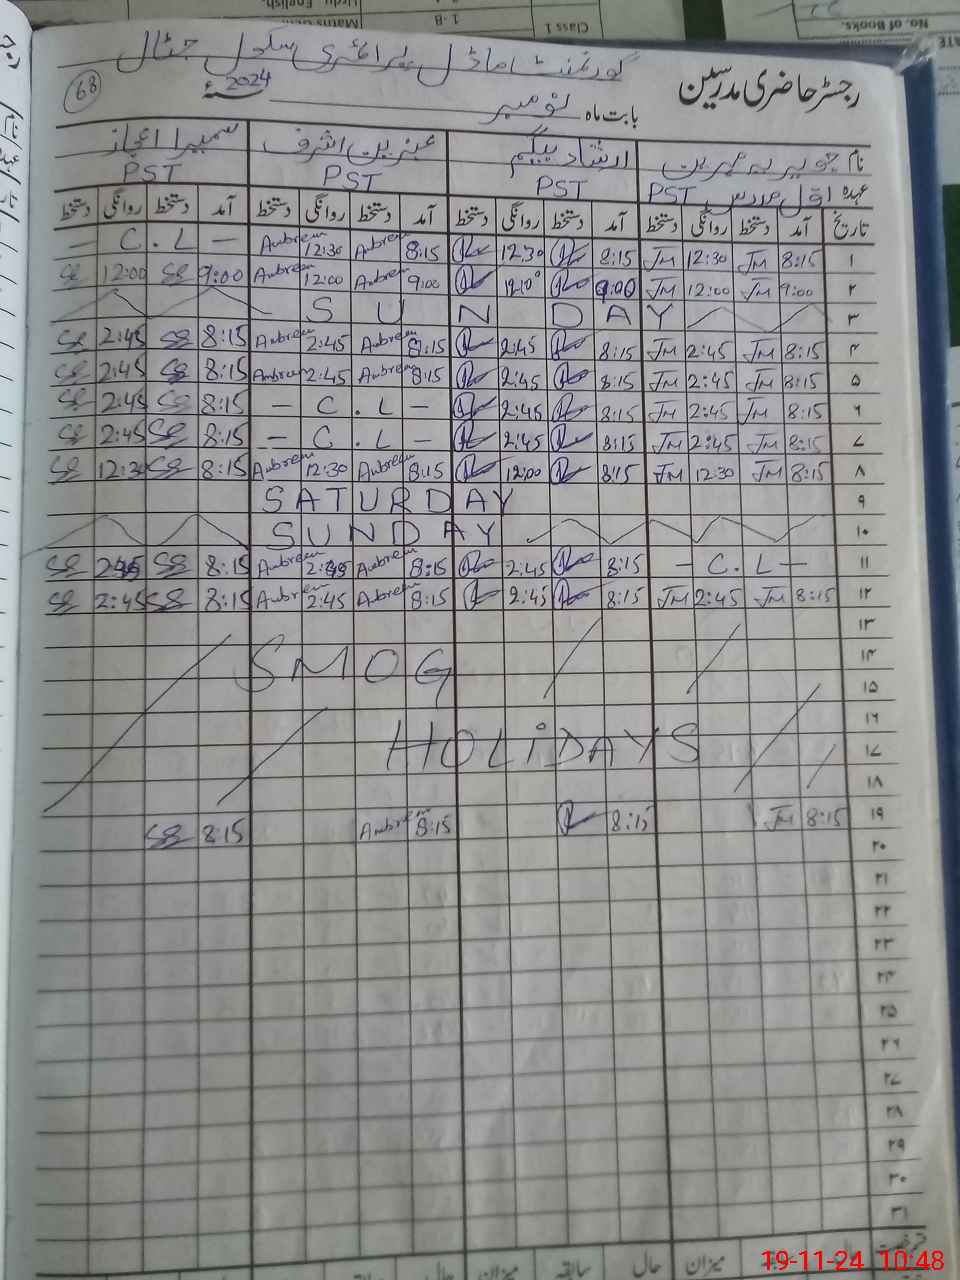 No. of Books.
Class 1
1-B
Maths
Urdu English
گورنمنٹ ماڈل پرائمری سکول جٹال
رجسٹر حاضری مدرسین
بابت ماہ نومبر 2024ء
68
نام جویریہ مہرین ارشاد بیگم عنبرین اشرف سمیرا اعجاز
عہدہ اوّل مدرس PST PST PST PST
تاریخ آمد دستخط روانگی دستخط آمد دستخط روانگی دستخط آمد دستخط روانگی دستخط آمد دستخط روانگی دستخط
۱ 8:15 JM 12:30 JM 8:15 12:30 8:15 Aubreen 12:30 Aubreen — C.L —
۲ 9:00 JM 12:00 JM 9:00 9:00 Aubreen 12:00 Aubreen 9:00 SE 12:00 SE
۳ SUNDAY
۴ 8:15 JM 2:45 JM 8:15 2:45 8:15 Aubreen 2:45 Aubreen 8:15 SE 2:45 SE
۵ 8:15 JM 2:45 JM 8:15 2:45 8:15 Aubreen 2:45 Aubreen 8:15 SE 2:45 SE
۶ 8:15 JM 2:45 JM 8:15 2:45 — C.L — 8:15 SE 2:45 SE
۷ 8:15 JM 2:45 JM 8:15 2:45 — C.L — 8:15 SE 2:45 SE
۸ 8:15 JM 12:30 JM 8:15 12:00 8:15 Aubreen 12:30 Aubreen 8:15 SE 12:30 SE
۹ SATURDAY
۱۰ SUNDAY
۱۱ — C.L — 8:15 2:45 8:15 Aubreen 2:45 Aubreen 8:15 SE 2:45 SE
۱۲ 8:15 JM 2:45 JM 8:15 2:45 8:15 Aubreen 2:45 Aubreen 8:15 SE 2:45 SE
۱۳
۱۴ SMOG
۱۵
۱۶
۱۷ HOLiDAYS
۱۸
۱۹ 8:15 JM 8:15 8:15 Aubreen 8:15 SE
۲۰
۲۱
۲۲
۲۳
۲۴
۲۵
۲۶
۲۷
۲۸
۲۹
۳۰
۳۱
حال سابقہ میزان حال سابقہ میزان حال
19-11-24 10:48